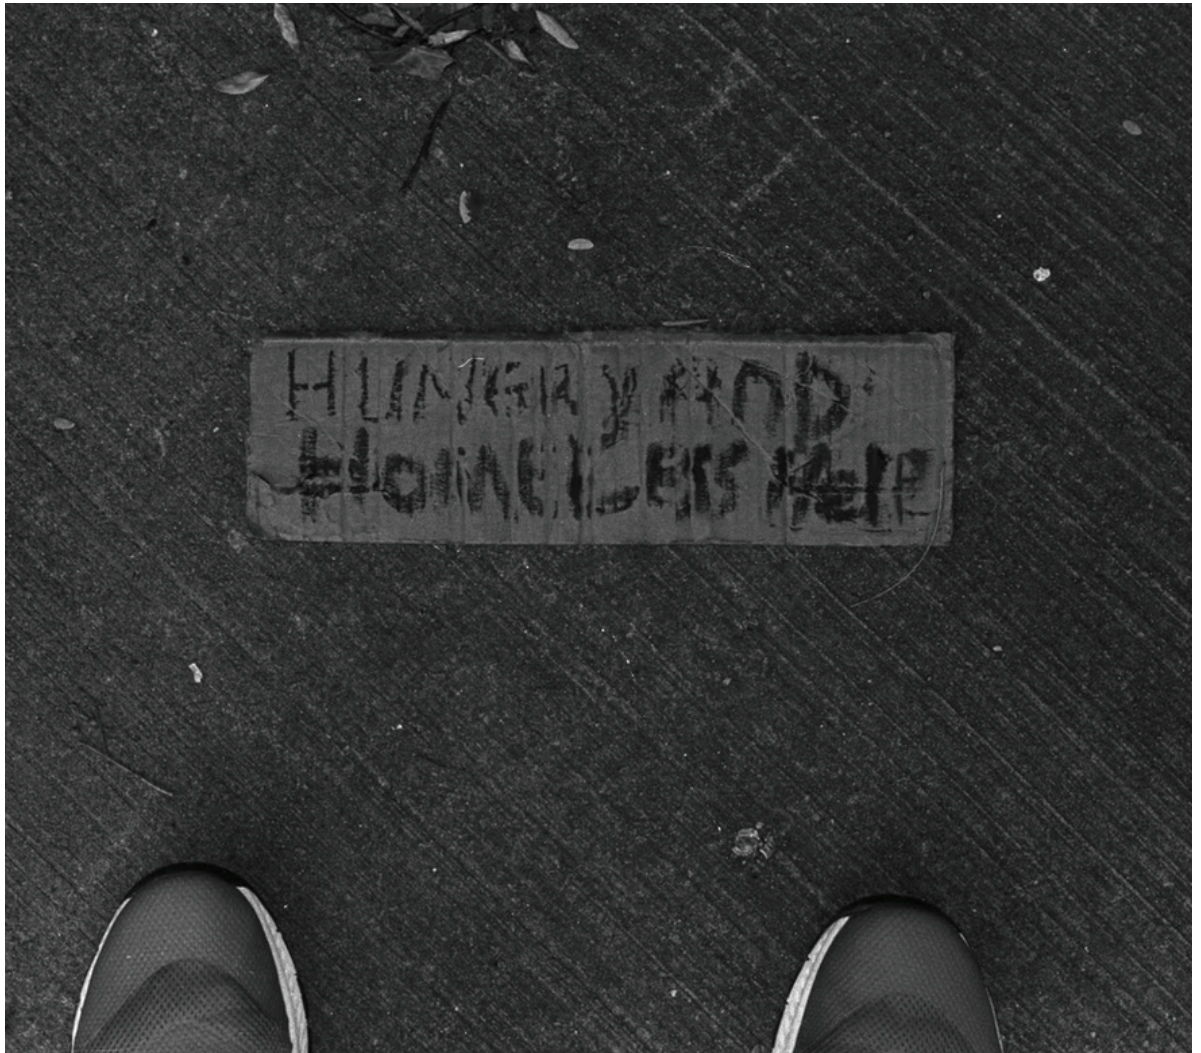 HUNGRy AnD
HOMELESS HELP